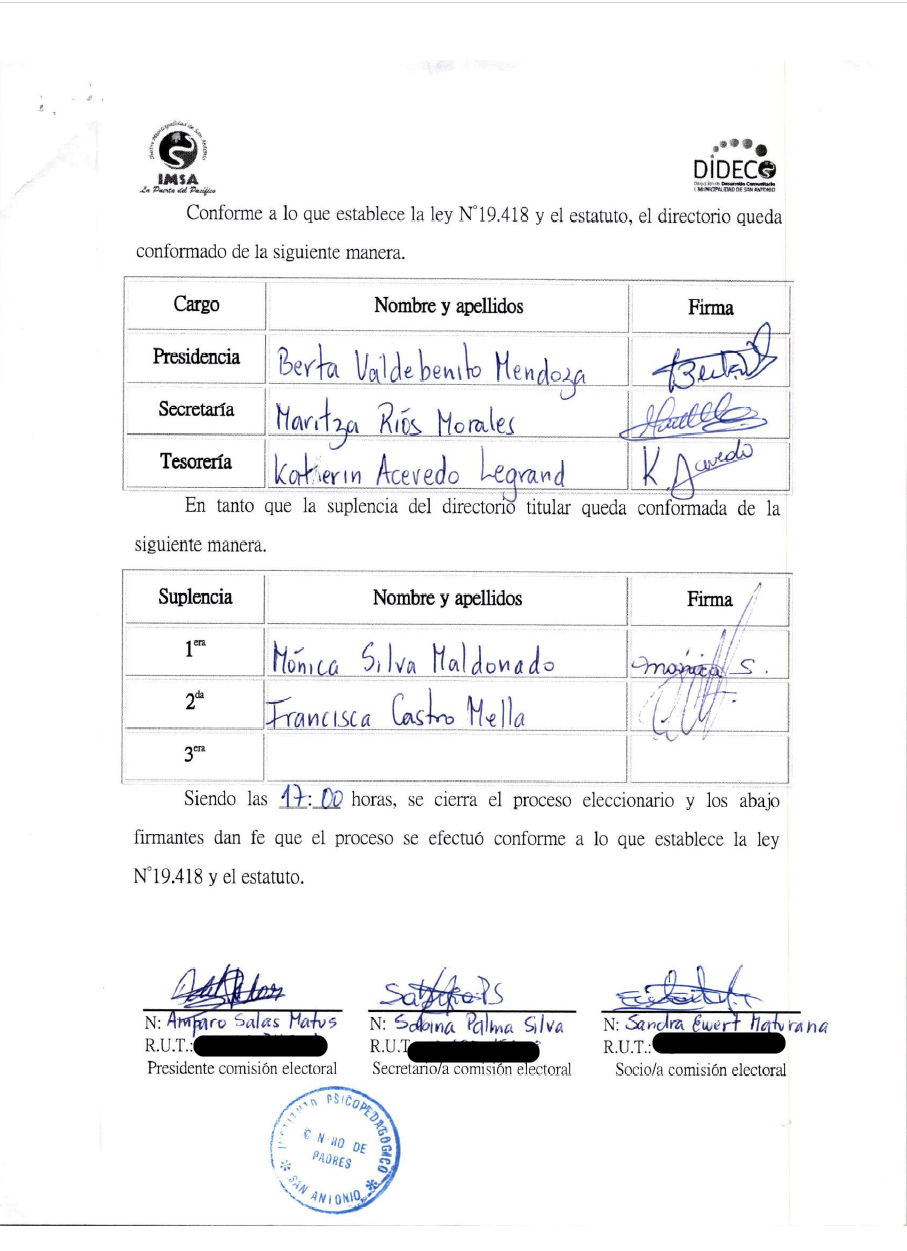 Ilustre Municipalidad de San Antonio
IMSA
La Puerta del Pacífico
DIDECO
Dirección de Desarrollo Comunitario
I. MUNICIPALIDAD DE SAN ANTONIO
Conforme a lo que establece la ley N°19.418 y el estatuto, el directorio queda
conformado de la siguiente manera.
Cargo Nombre y apellidos Firma
Presidencia Berta Valdebenito Mendoza Berta
Secretaría Maritza Ríos Morales
Tesorería Katherin Acevedo Legrand K. Acevedo
En tanto que la suplencia del directorio titular queda conformada de la
siguiente manera.
Suplencia Nombre y apellidos Firma
1era Mónica Silva Maldonado Mónica S.
2da Francisca Castro Mella
3era
Siendo las 17:00 horas, se cierra el proceso eleccionario y los abajo
firmantes dan fe que el proceso se efectuó conforme a lo que establece la ley
N°19.418 y el estatuto.
N: Amparo Salas Matus N: Sabina Palma Silva N: Sandra Ewert Maturana
R.U.T.: R.U.T R.U.T.:
Presidente comisión electoral Secretario/a comisión electoral Socio/a comisión electoral
PSICOPEDAGOGICO
DE
PADRES
SAN ANTONIO